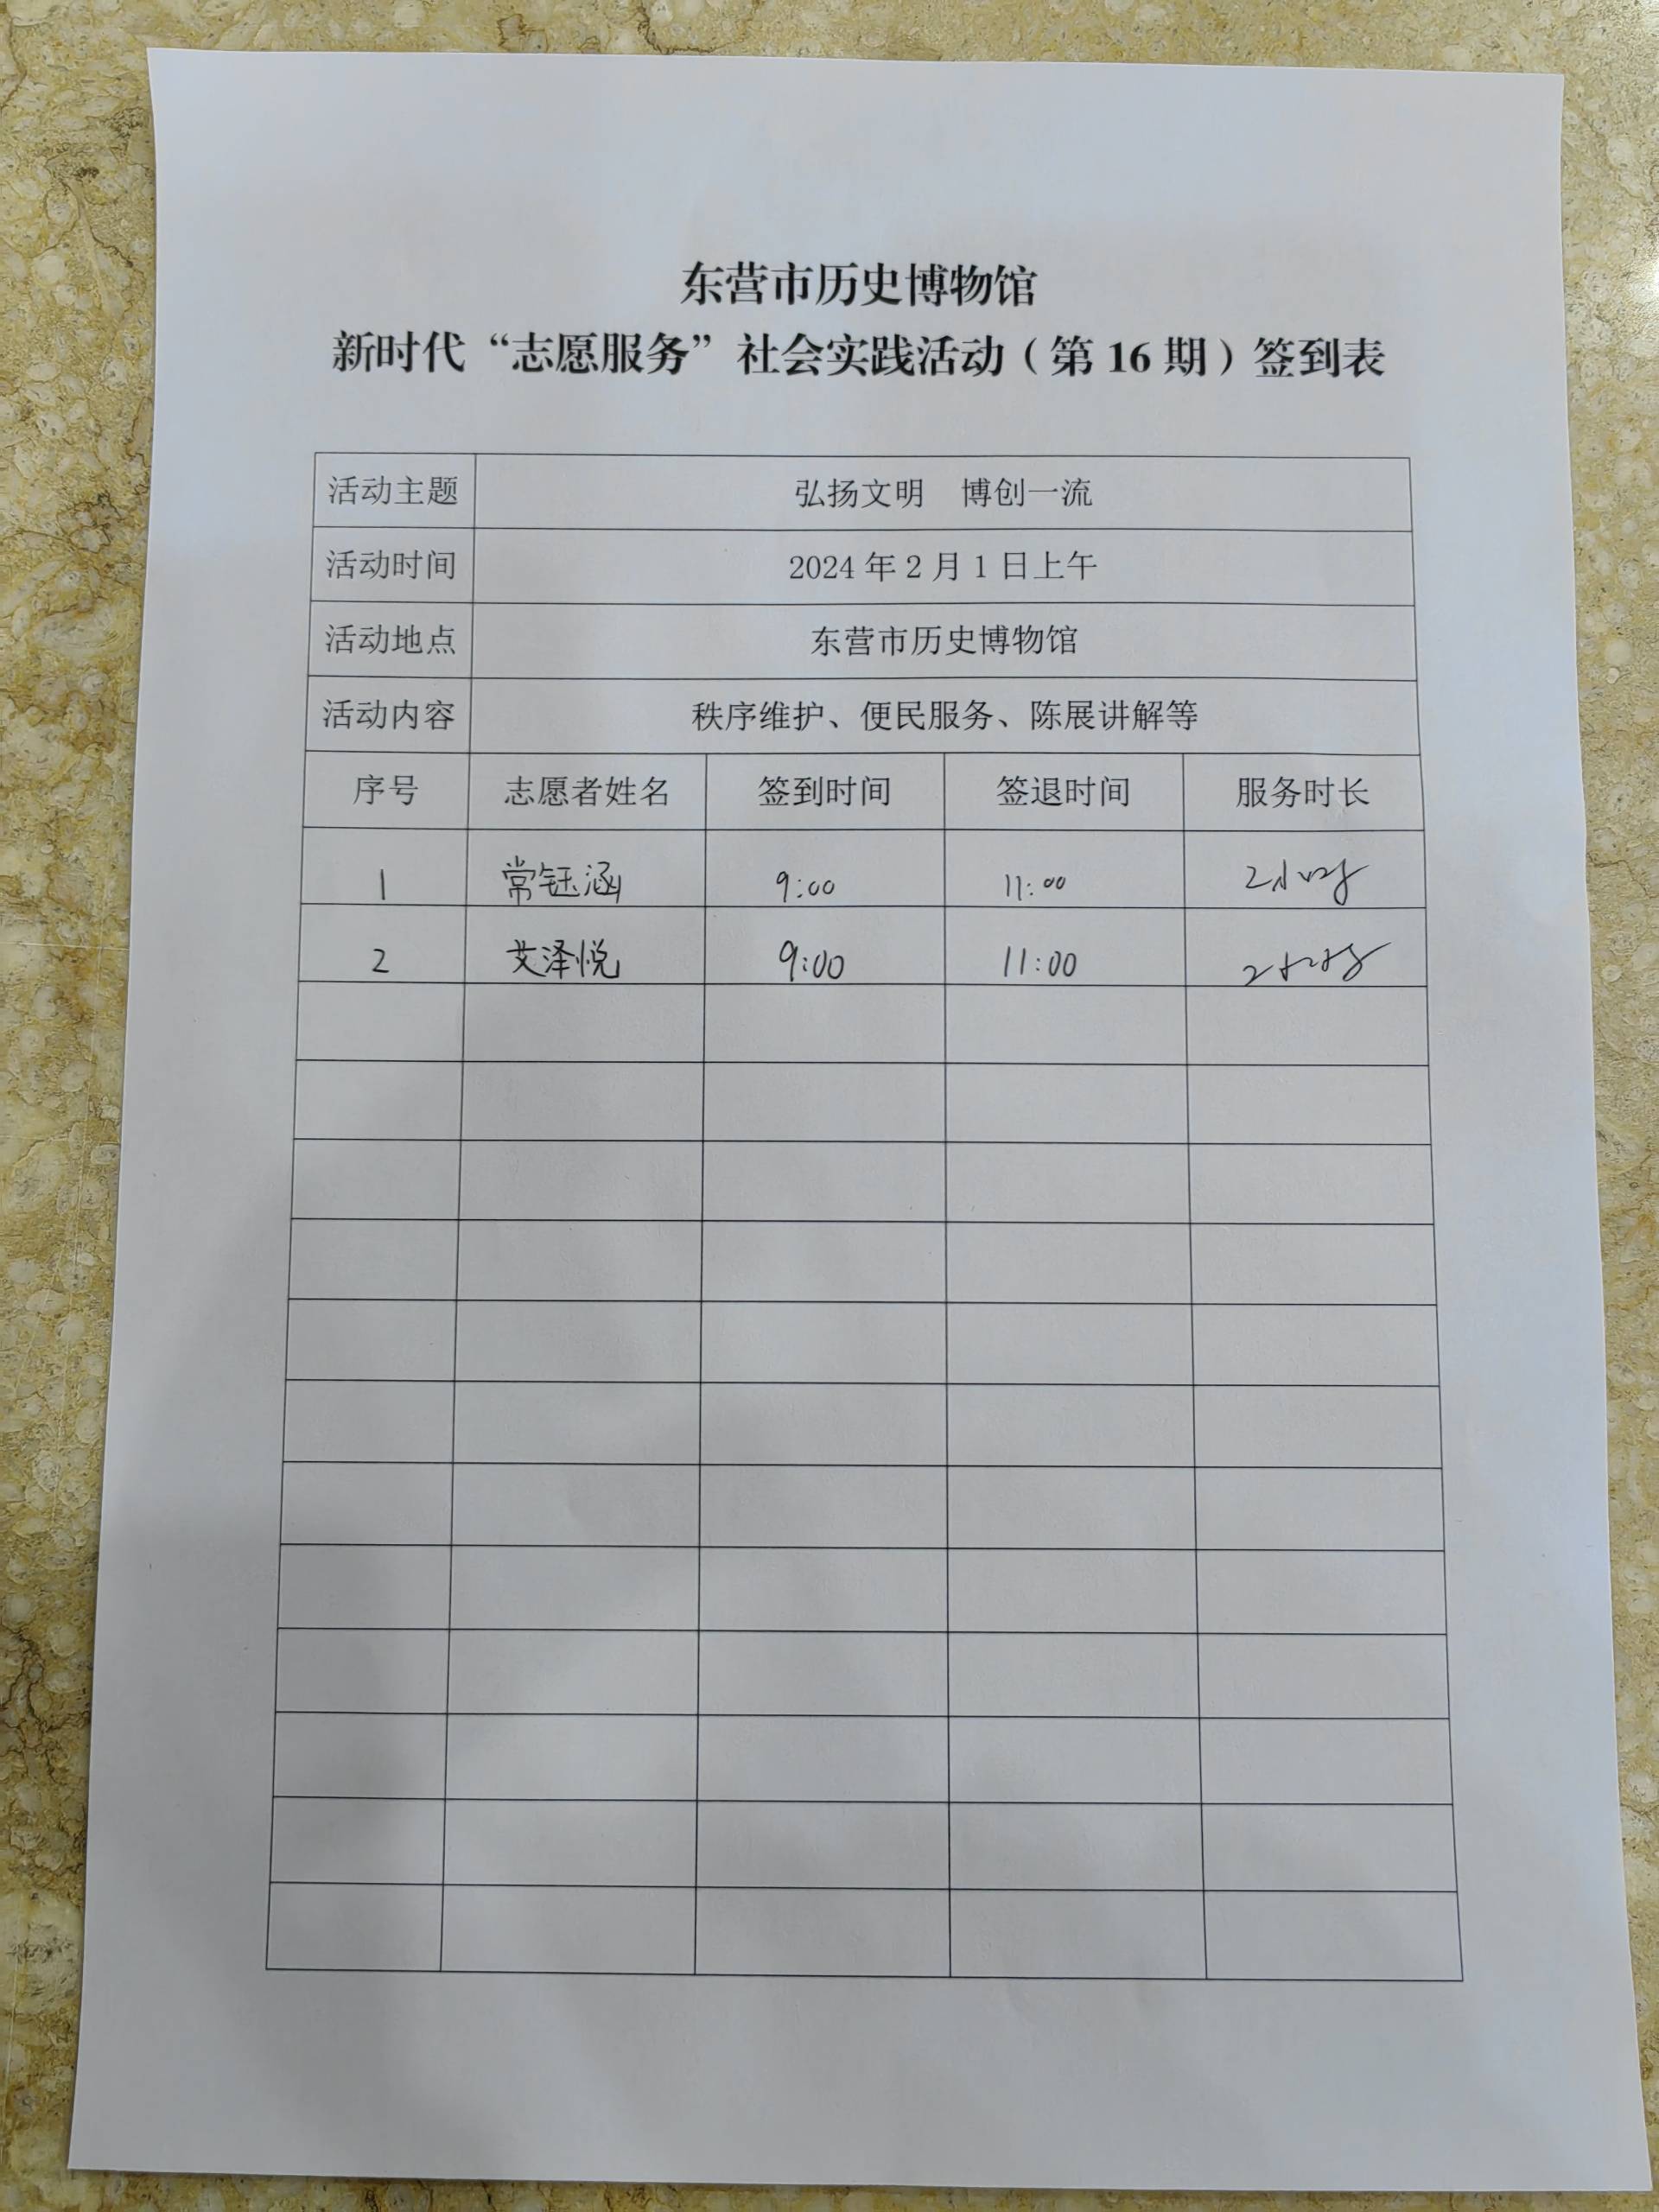 东营市历史博物馆
新时代“志愿服务”社会实践活动（第 16 期）签到表
活动主题 弘扬文明 博创一流
活动时间 2024 年 2 月 1 日上午
活动地点 东营市历史博物馆
活动内容 秩序维护、便民服务、陈展讲解等
序号 志愿者姓名 签到时间 签退时间 服务时长
1 常钰涵 9:00 11:00 2小时
2 艾泽悦 9:00 11:00 2小时